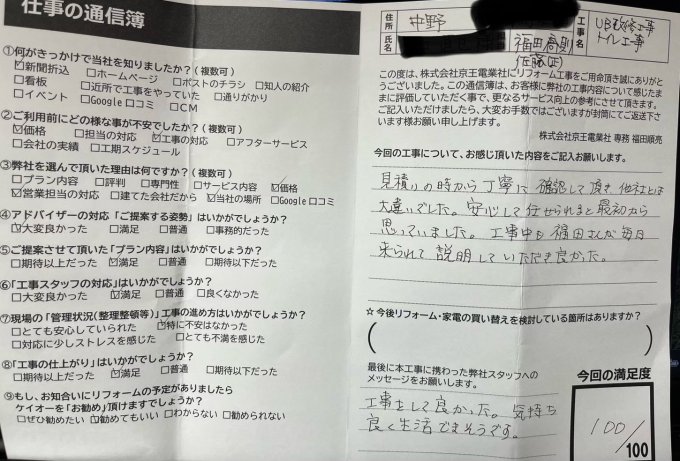 仕事の通信簿
①何がきっかけで当社を知りましたか?(複数可)
☑新聞折込 □ホームページ □ポストのチラシ □知人の紹介
□看板 □近所で工事をやっていた □通りがかり
□イベント □Google口コミ □CM
②ご利用前にどの様な事が不安でしたか?(複数可)
☑価格 □担当の対応 ☑工事の対応 □アフターサービス
□会社の実績 □工期スケジュール
③弊社を選んで頂いた理由は何ですか?(複数可)
□プラン内容 □評判 □専門性 □サービス内容 ☑価格
☑営業担当の対応 □建てた会社だから ☑当社の場所 □Google口コミ
④アドバイザーの対応「ご提案する姿勢」はいかがでしょうか?
☑大変良かった □満足 □普通 □事務的だった
⑤ご提案させて頂いた「プラン内容」はいかがでしょうか?
□期待以上だった ☑満足 □普通 □期待以下だった
⑥「工事スタッフの対応」はいかがでしょうか?
□大変良かった ☑満足 □普通 □良くなかった
⑦現場の「管理状況(整理整頓等)」工事の進め方はいかがでしょうか?
□とても安心していられた ☑特に不安はなかった
□対応に少しストレスを感じた □とても不満を感じた
⑧「工事の仕上がり」はいかがでしょうか?
□期待以上だった ☑満足 □普通 □期待以下だった
⑨もし、お知合いにリフォームの予定がありましたら
ケイオーを「お勧め」頂けますでしょうか?
□ぜひ勧めたい ☑勧めてもいい □わからない □勧められない
住所 中野
氏名
福田
佐藤(正)
工事名 UB改修工事
トイレ工事
この度は、株式会社京王電業社にリフォーム工事をご用命頂き誠にありがと
うございました。この通信簿は、お客様に弊社の工事内容について感じたま
まに評価していただく事で、更なるサービス向上の参考にさせて頂きます。
ご記入いただけましたら、大変お手数ではございますが封筒にてご返送下さ
います様お願い申し上げます。
株式会社京王電業社 専務 福田順亮
今回の工事について、お感じ頂いた内容をご記入お願いします。
見積りの時から丁寧に確認して頂き他社とは
大違いでした。安心して任せられると最初から
思っていました。工事中も福田さんが毎日
来られて説明していただき良かった。
☆今後リフォーム・家電の買い替えを検討している箇所はありますか?
( )
最後に本工事に携わった弊社スタッフへの
メッセージをお願いします。
工事をして良かった。気持ち
良く生活できそうです。
今回の満足度
100/100